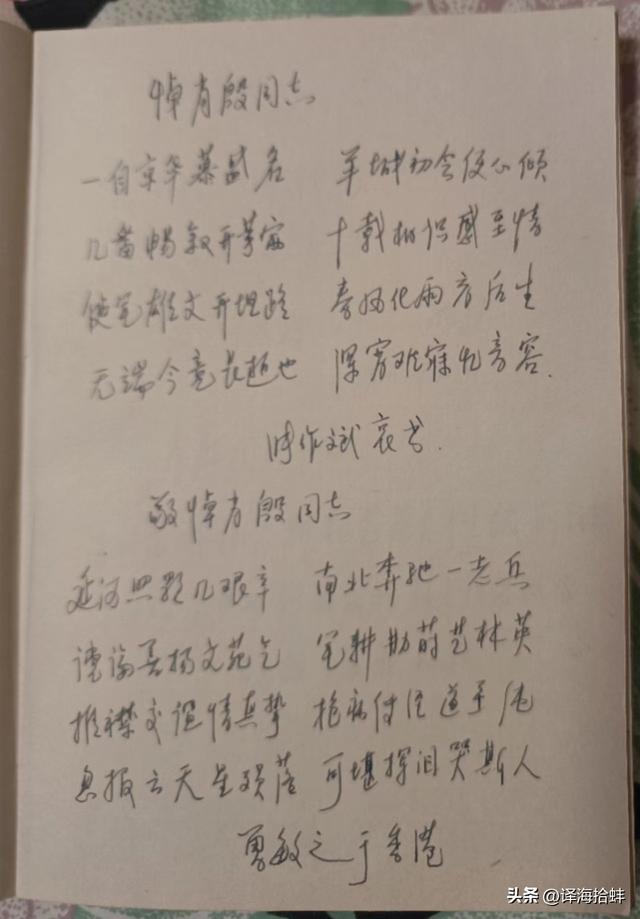 悼肖殷同志
一自京华慕盛名 羊城初会便心倾
几番畅叙开茅塞 十载相识感至情
健笔雄文开坦路 春风化雨育后生
无端今竟长逝也 深宵难寐忆音容.
陈作斌哀书.
敬悼肖殷同志
延河照影几艰辛 南北奔驰一老兵
谠论弄扬文苑气 笔耕勤莳艺林英
推襟交谊情真挚 抱病付
息报云天星殒落 可堪挥泪哭斯人
曾敏之于香港
头条@译海拾蚌